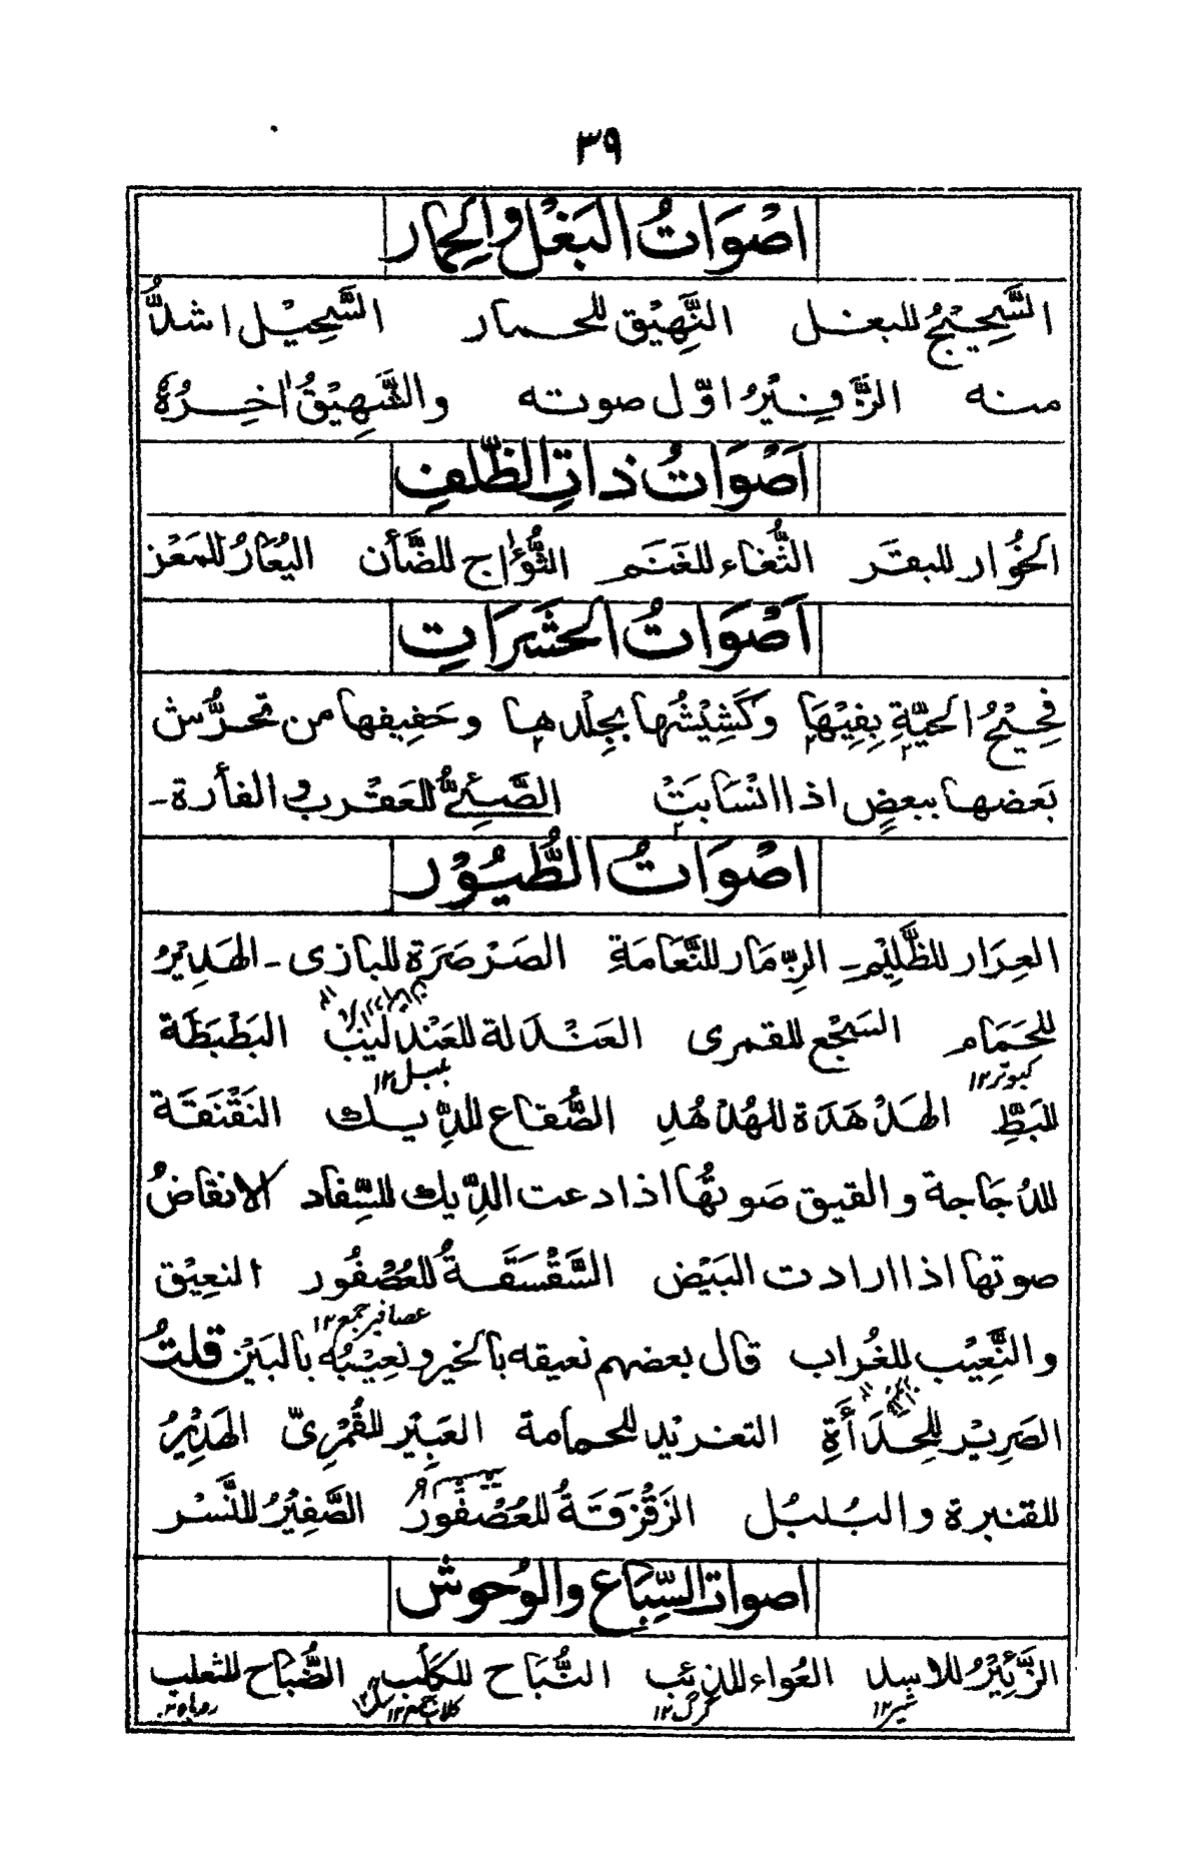 ٣٩
اصْوَاتُ البَغْل والحِمَار
السَّحِيْجُ للبغل النَّهِيْق للحمار السَّحِيْل اشدُّ
منه الزَّفِيْرُ اوّل صوته والشَّهِيْقُ اٰخِرُهٗ
اَصْوَاتُ ذاتِ الظِّلْفِ
الخُوَار للبقَر الثُّغاء للغَنَم الثُّؤَاج للضَّأن اليُعَارُ للمَعْز
اَصْوَاتُ الحَشَرَاتِ
فَحِيْحُ الحَيَّةِ بِفِيْهَا وكَشِيْشُهَا بِجِلْدها وحَفِيفها من تحرُّش
بَعضها ببعضٍ اذا انْسَابَتْ الصَّئِيُّ للعَقْرب والفأرة۔
اصْوَاتُ الطُّيُوْر
العِرَار للظَّلِيْم۔ الزِّمَار للنَّعَامَةِ الصَرْصَرَة للبازى۔ الهَدِيْرُ
للحَمَام السَجْع للقمرى العَنْدَلة للعَنْدَلِيْب البَطْبَطَة
كبوتر١٢ بلبل١٢
للبَطِّ الهَدْهَدَة للهُدْهُد الصُّقاع للدِّيك النَقْنَقَة
للدُجَاجة والقيق صَوتُها اذا دعت الدِّيك للسِّفاد الانقاضُ
صوتها اذا ارادت البَيْض السَّقْسَقَةُ للعُصْفُور النعِيْق
عصافير جمع١٢
والنَّعِيْب للغُراب قال بعضهم نعيقه بالخير ونعِيْبُه بالبَيْن قلتُ
الصَرِيْر للحِدَأَةِ التغريْد للحمامة العَبِيْر للقُمْرِىّ الهَدِيْرُ
للقنبرة والبُلبُل الزَقْزَقَةُ للعُصْفُورُ الصَّفِيْرُ للنَّسْر
اصواتُ السِّبَاع والوُحوش
الزَّئِيْرُ للاسد العُواء للذئب النُّبَاح للكَلْب الضُّبَاح للثعلب
شير١٢ گرگ١٢ كلاب جمع١٢ روباه١٢